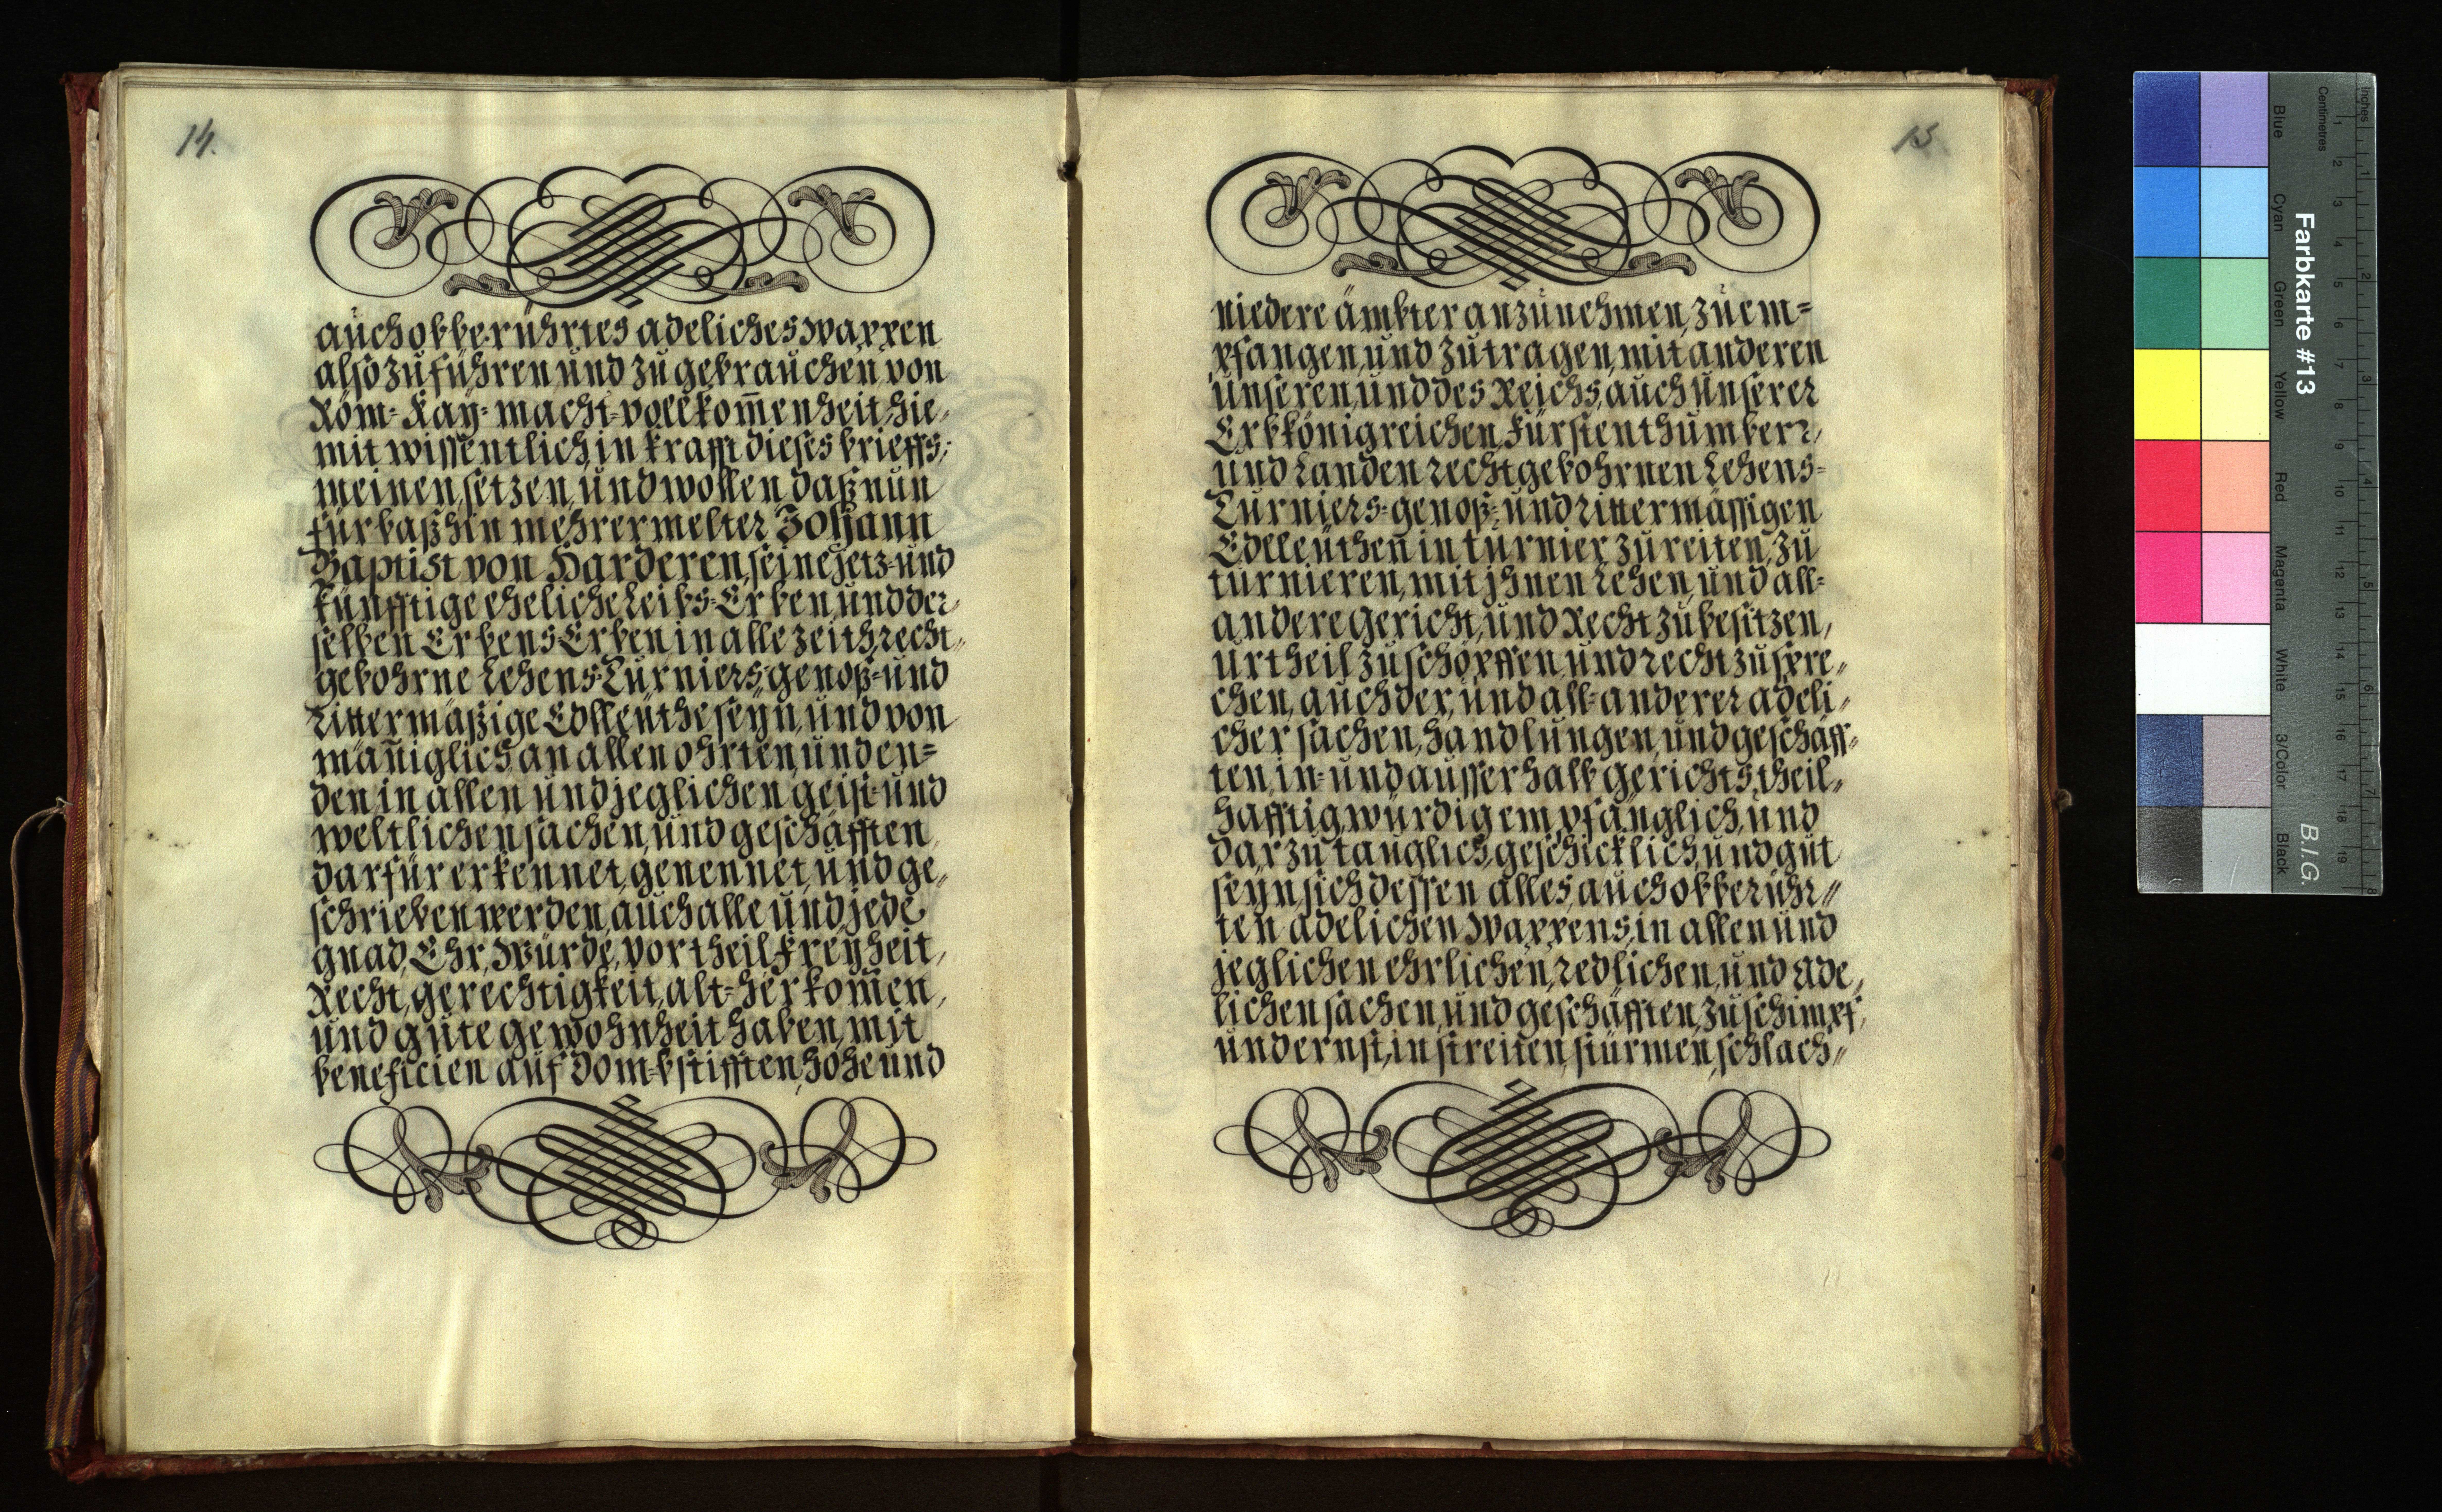 14.
auch obberührtes adeliches Wappen
also zu führen und zu gebrauchen, von
Röm= Kay= macht=vollkom̄enheit, hie,
mit wissentlich, in krafft dieses brieffs,
meinen, setzen, und wollen, daß nun
fürbaßhin mehrermelter Johann
Baptist von Harderen, seine jetz=und
künfftige eheliche Leibs=Erben, und der,
selben Erbens Erben in alle zeith recht,,
gebohrne Lehens=Turniers=genoß=und
rittermäßige Edlleuthe seyn, und von
mäñiglich, an allen ohrten, und en=
den in allen und jeglichen geist=und
weltlichen sachen, und geschäfften
darfür erkennet, genennet, und ge,,
schrieben werden, auch alle und jede
gnad, Ehr, Würde, vortheil, Freyheit,
Recht, gerechtigkeit, alt=herkom̄en,
und gute gewohnheit haben, mit
beneficien auf Dom=bstifften, hohe und
15
niedere ämbter anzunehmen, zu em=
pfangen, und zu tragen, mit anderen
unseren, und des Reichs, auch Unserer
Erbkönigreichen, Fürstenthumberr,
und Landen rechtgebohrnen Lehens=
Turniers=genoß=und rittermässigen
Edlleüthen̄ in turnier zu reiten, zu
turnieren, mit jhnen Lehen, und all=
andere gericht, und Recht zu besitzen,
urtheil zu schöpffen, und recht zu spre,,
chen, auch der, und all=anderer adeli,
cher sachen, handlungen, und geschäff=
ten, in=und ausserhalb gerichts, theil,,
hafftig, würdig, empfänglich, und
darzu tauglich, geschicklich, und gut
seyn, sich dessen alles, auch obberühr,,
ten adelichen Wappens, in allen und
jeglichen ehrlichen, redlichen, und Ade,
lichen sachen, und geschäfften, zu schimpf,
und ernst, in streiten, stürmen, schlach,,
Farbkarte #13
B.I.G.
Inches
Centimetres
Blue
Cyan
Green
Yellow
Red
Magenta
White
3/Color
Black